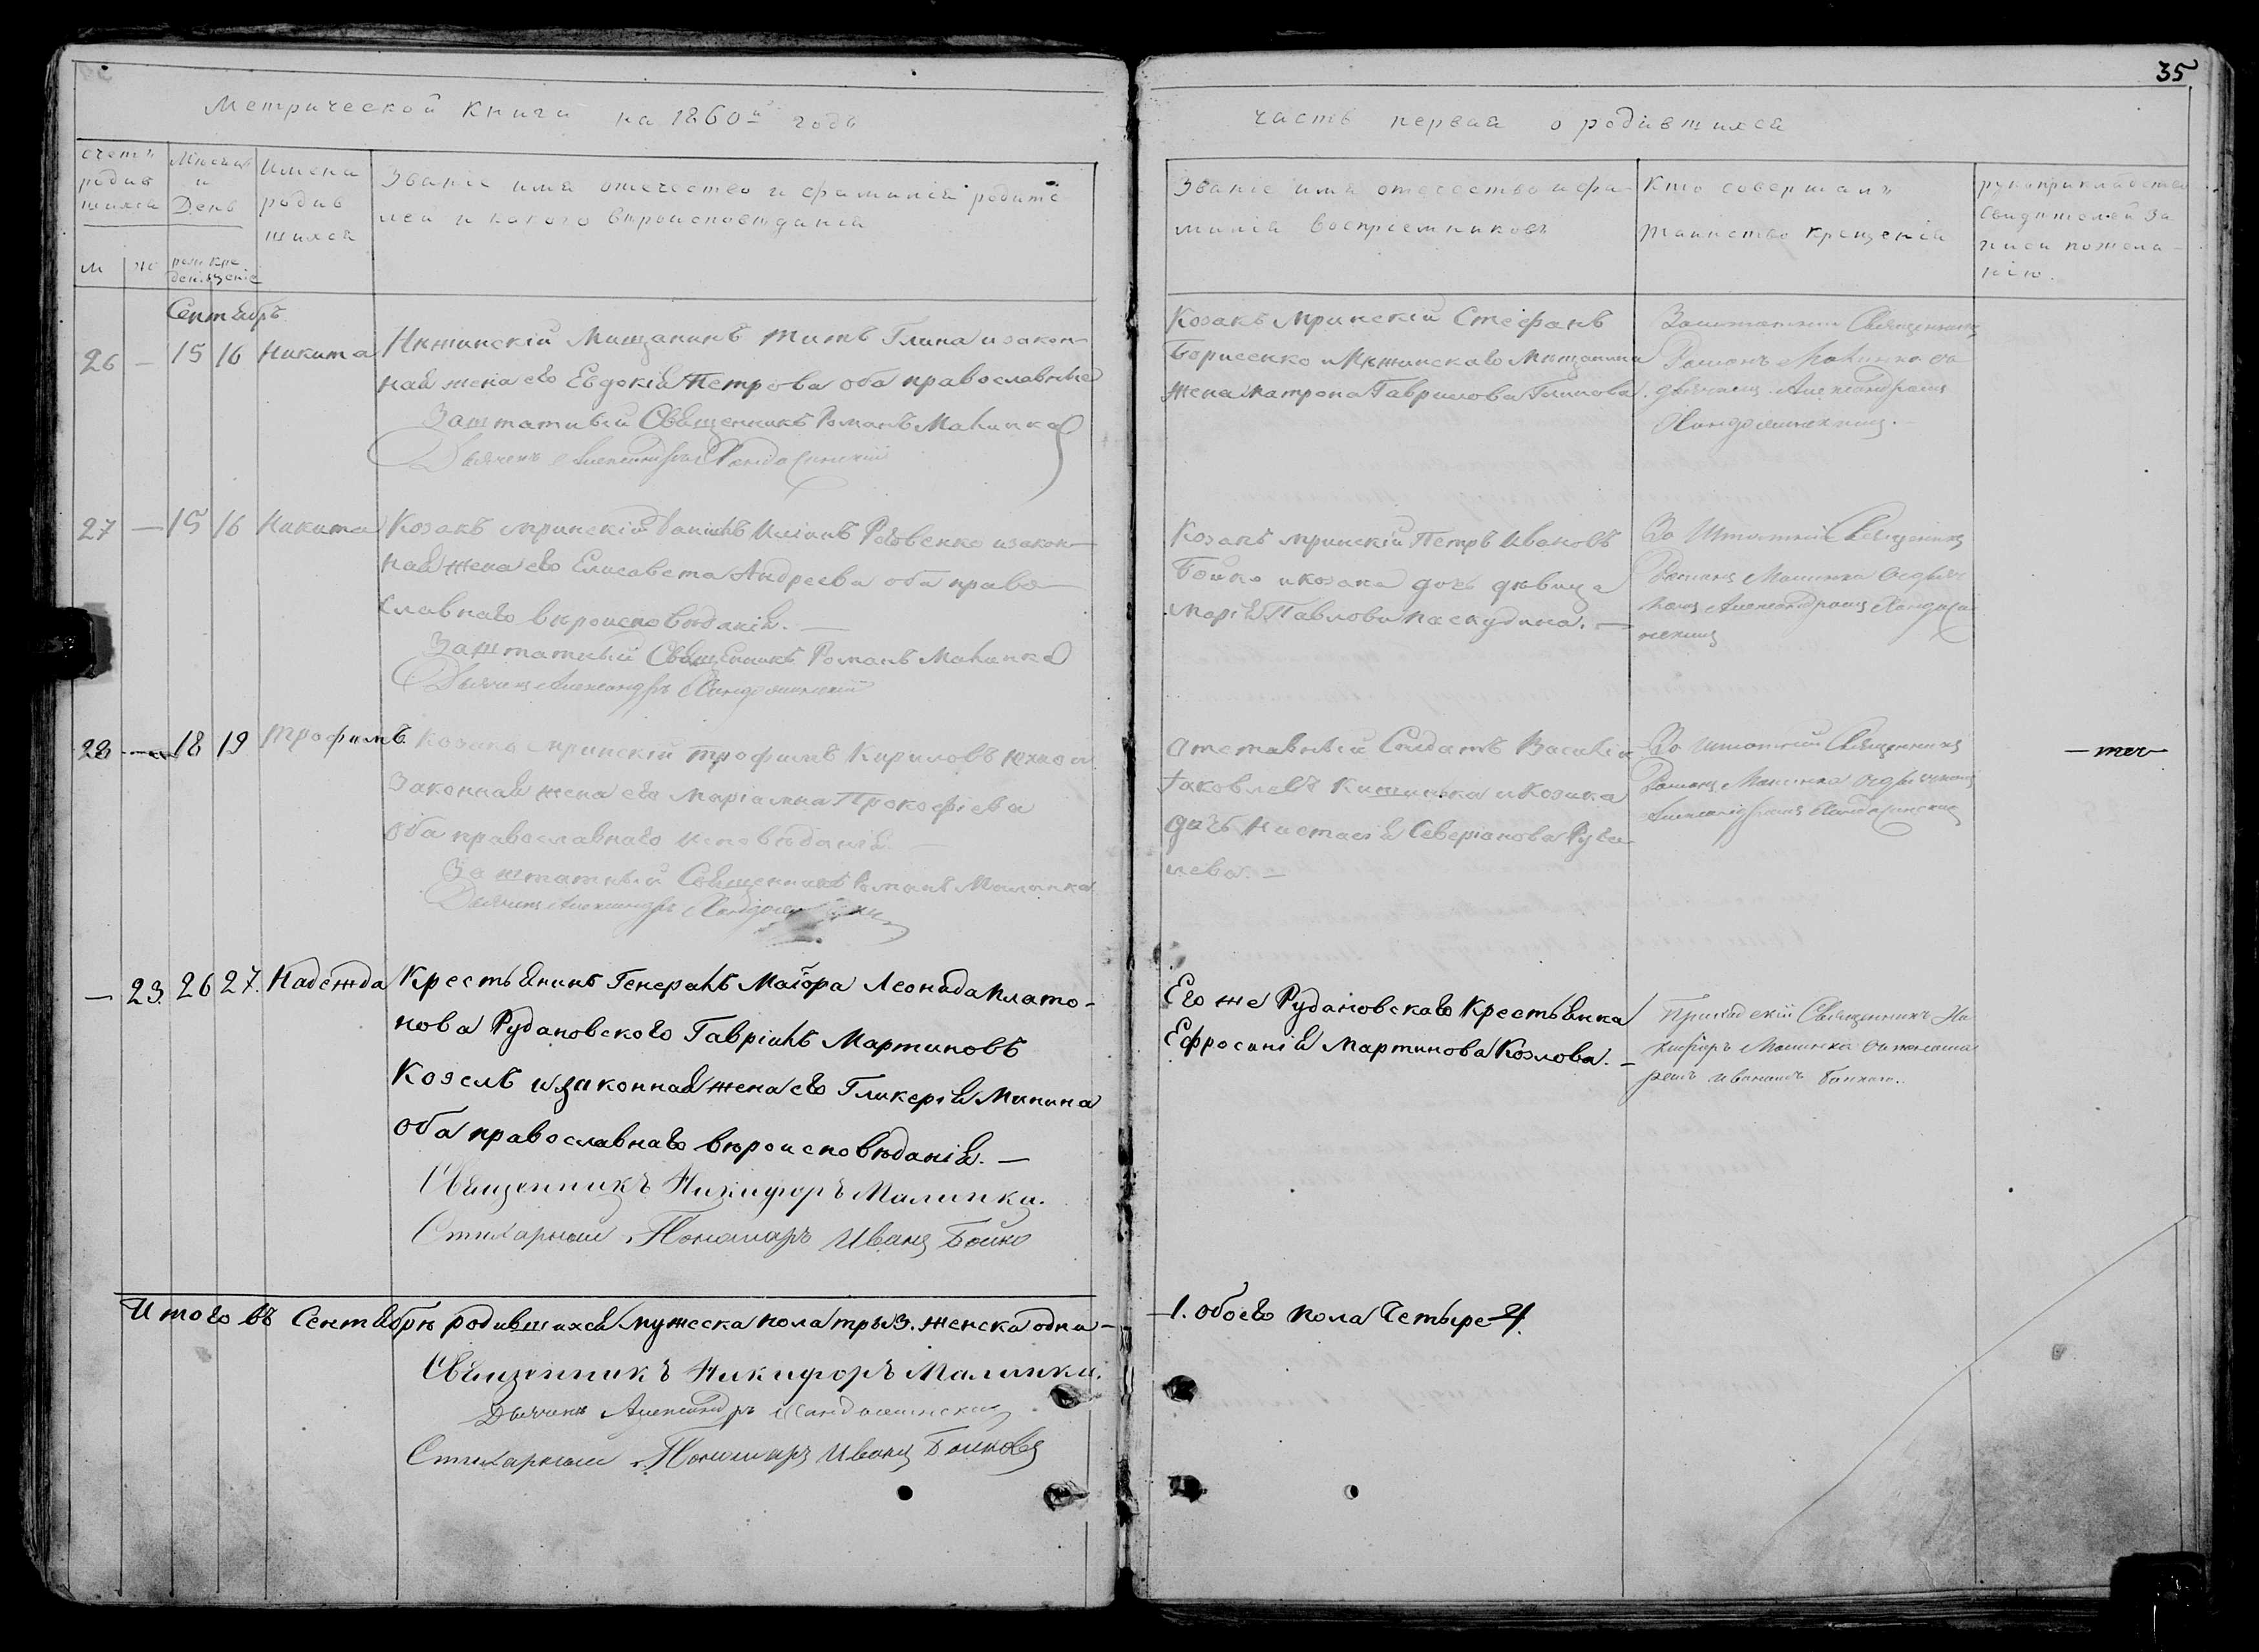 35
Метрической книги на 1860й годъ
часть первая о родившихся
счетъ родив шихся
м ж
Мѣсяцъ и День
рож дені кре щеніе
Имена родив шихся
Званіе имя отечество и фамилія родите
лей и какого вѣроисповѣданія
Званіе имя отечество и фа-
милія воспріемниковъ
Кто совершалъ
таинство крещенія
рукоприкладство
свидѣтелей за
писи пожела-
нію.
Сентябрь
26 — 15 16 Никита
Нѣжинскій Мищанинъ Титъ Глина и закон-
ная жена его Евдокія Петрова оба православные
Заштатный Священникъ Романъ Малинка
Дьячекъ Александръ
Козакъ мринскій Стефанъ
Борисенко и Нѣжинскаго Мищанина
жена Матрона Гаврилова Глинова.
Заштатный Священникъ
Романъ Малинка съ
дьячкомъ Александромъ
27 — 15 16 Никита
Козакъ мринскій Данiилъ и закон-
ная жена его Елисавета Андреева оба право-
славнаго вѣроисповѣданія. —
Заштатный Священникъ Романъ Малинка
Дьячекъ Александръ
Козакъ мринскій Петръ Ивановъ
Бойко и козака дочь дѣвица
Марія Павлова Паскудина. —
За Штатный Священникъ
Романъ Малинка съ дьяч
комъ Александромъ
28 — 18 19 Трофимъ
Козакъ мринскій Трофимъ Кириловъ
законная жена его Маріамна Прокофіева
оба православнаго исповѣданія. —
Заштатный Священникъ Романъ Малинка
Дьячекъ Александръ
Отставный Солдатъ Василій
Іаковлевъ Кишинька и Козака
дочь Настасія Северіанова
лева. —
За Штатный Священникъ
Романъ Малинка съ дьячкомъ
Александромъ
— 23. 26 27. Надежда
Крестьянинъ Генералъ Маіора Леонида Плато-
нова Рудановского Гавріилъ Мартиновъ
Козелъ и законная жена его Гликерія Минина
оба православнаго вѣроисповѣданія. —
Священникъ Никифоръ Малинка.
Стихарный Пономаръ Иванъ Бойко
Его же Рудановскаго Крестьянка
Ефросинія Мартинова Козлова. —
Приходскій Священникъ Ни
кифоръ Малинка съ понома
ремъ Иваномъ Бойкомъ.
Итого въ Сентябрѣ родившихся мужеска пола три 3. женска одна —
1. обоего пола Четыре 4.
Священникъ Никифоръ Малинка.
Дьячекъ Александръ
Стихарный Пономаръ Иванъ